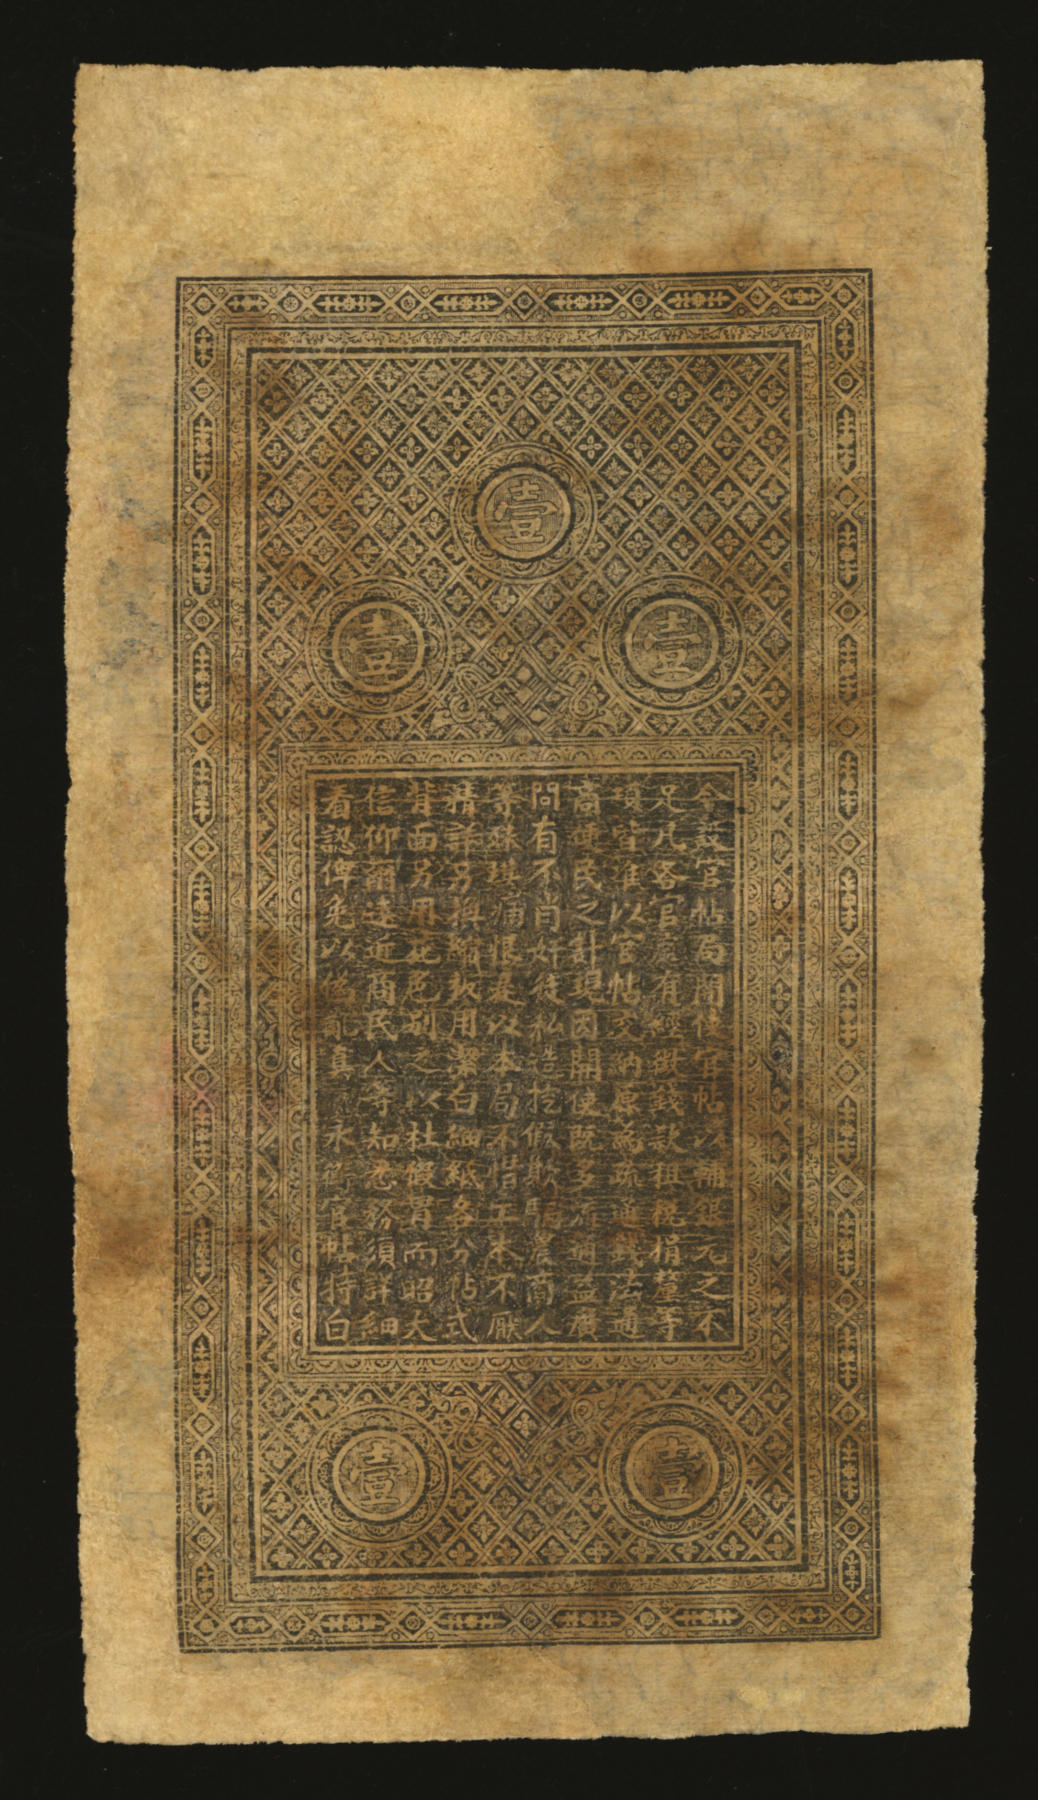 壹
壹
壹
今設官帖局開使官帖以補銀元之不
足凡各官處有經徵錢款租稅捐釐等
項皆准以官帖交納原為疏通錢法通
商便民之計現因開使既多流通益廣
間有不肖奸徒私造挖假欺騙農商人
等殊堪痛恨是以本局不惜工本不厭
精詳另換新款用潔白細紙各分帖式
背面另用花色別之以杜假冒而昭大
信仰爾遠近商民人等知悉務須詳細
看認俾免以偽亂真 永衡官帖特白
壹
壹